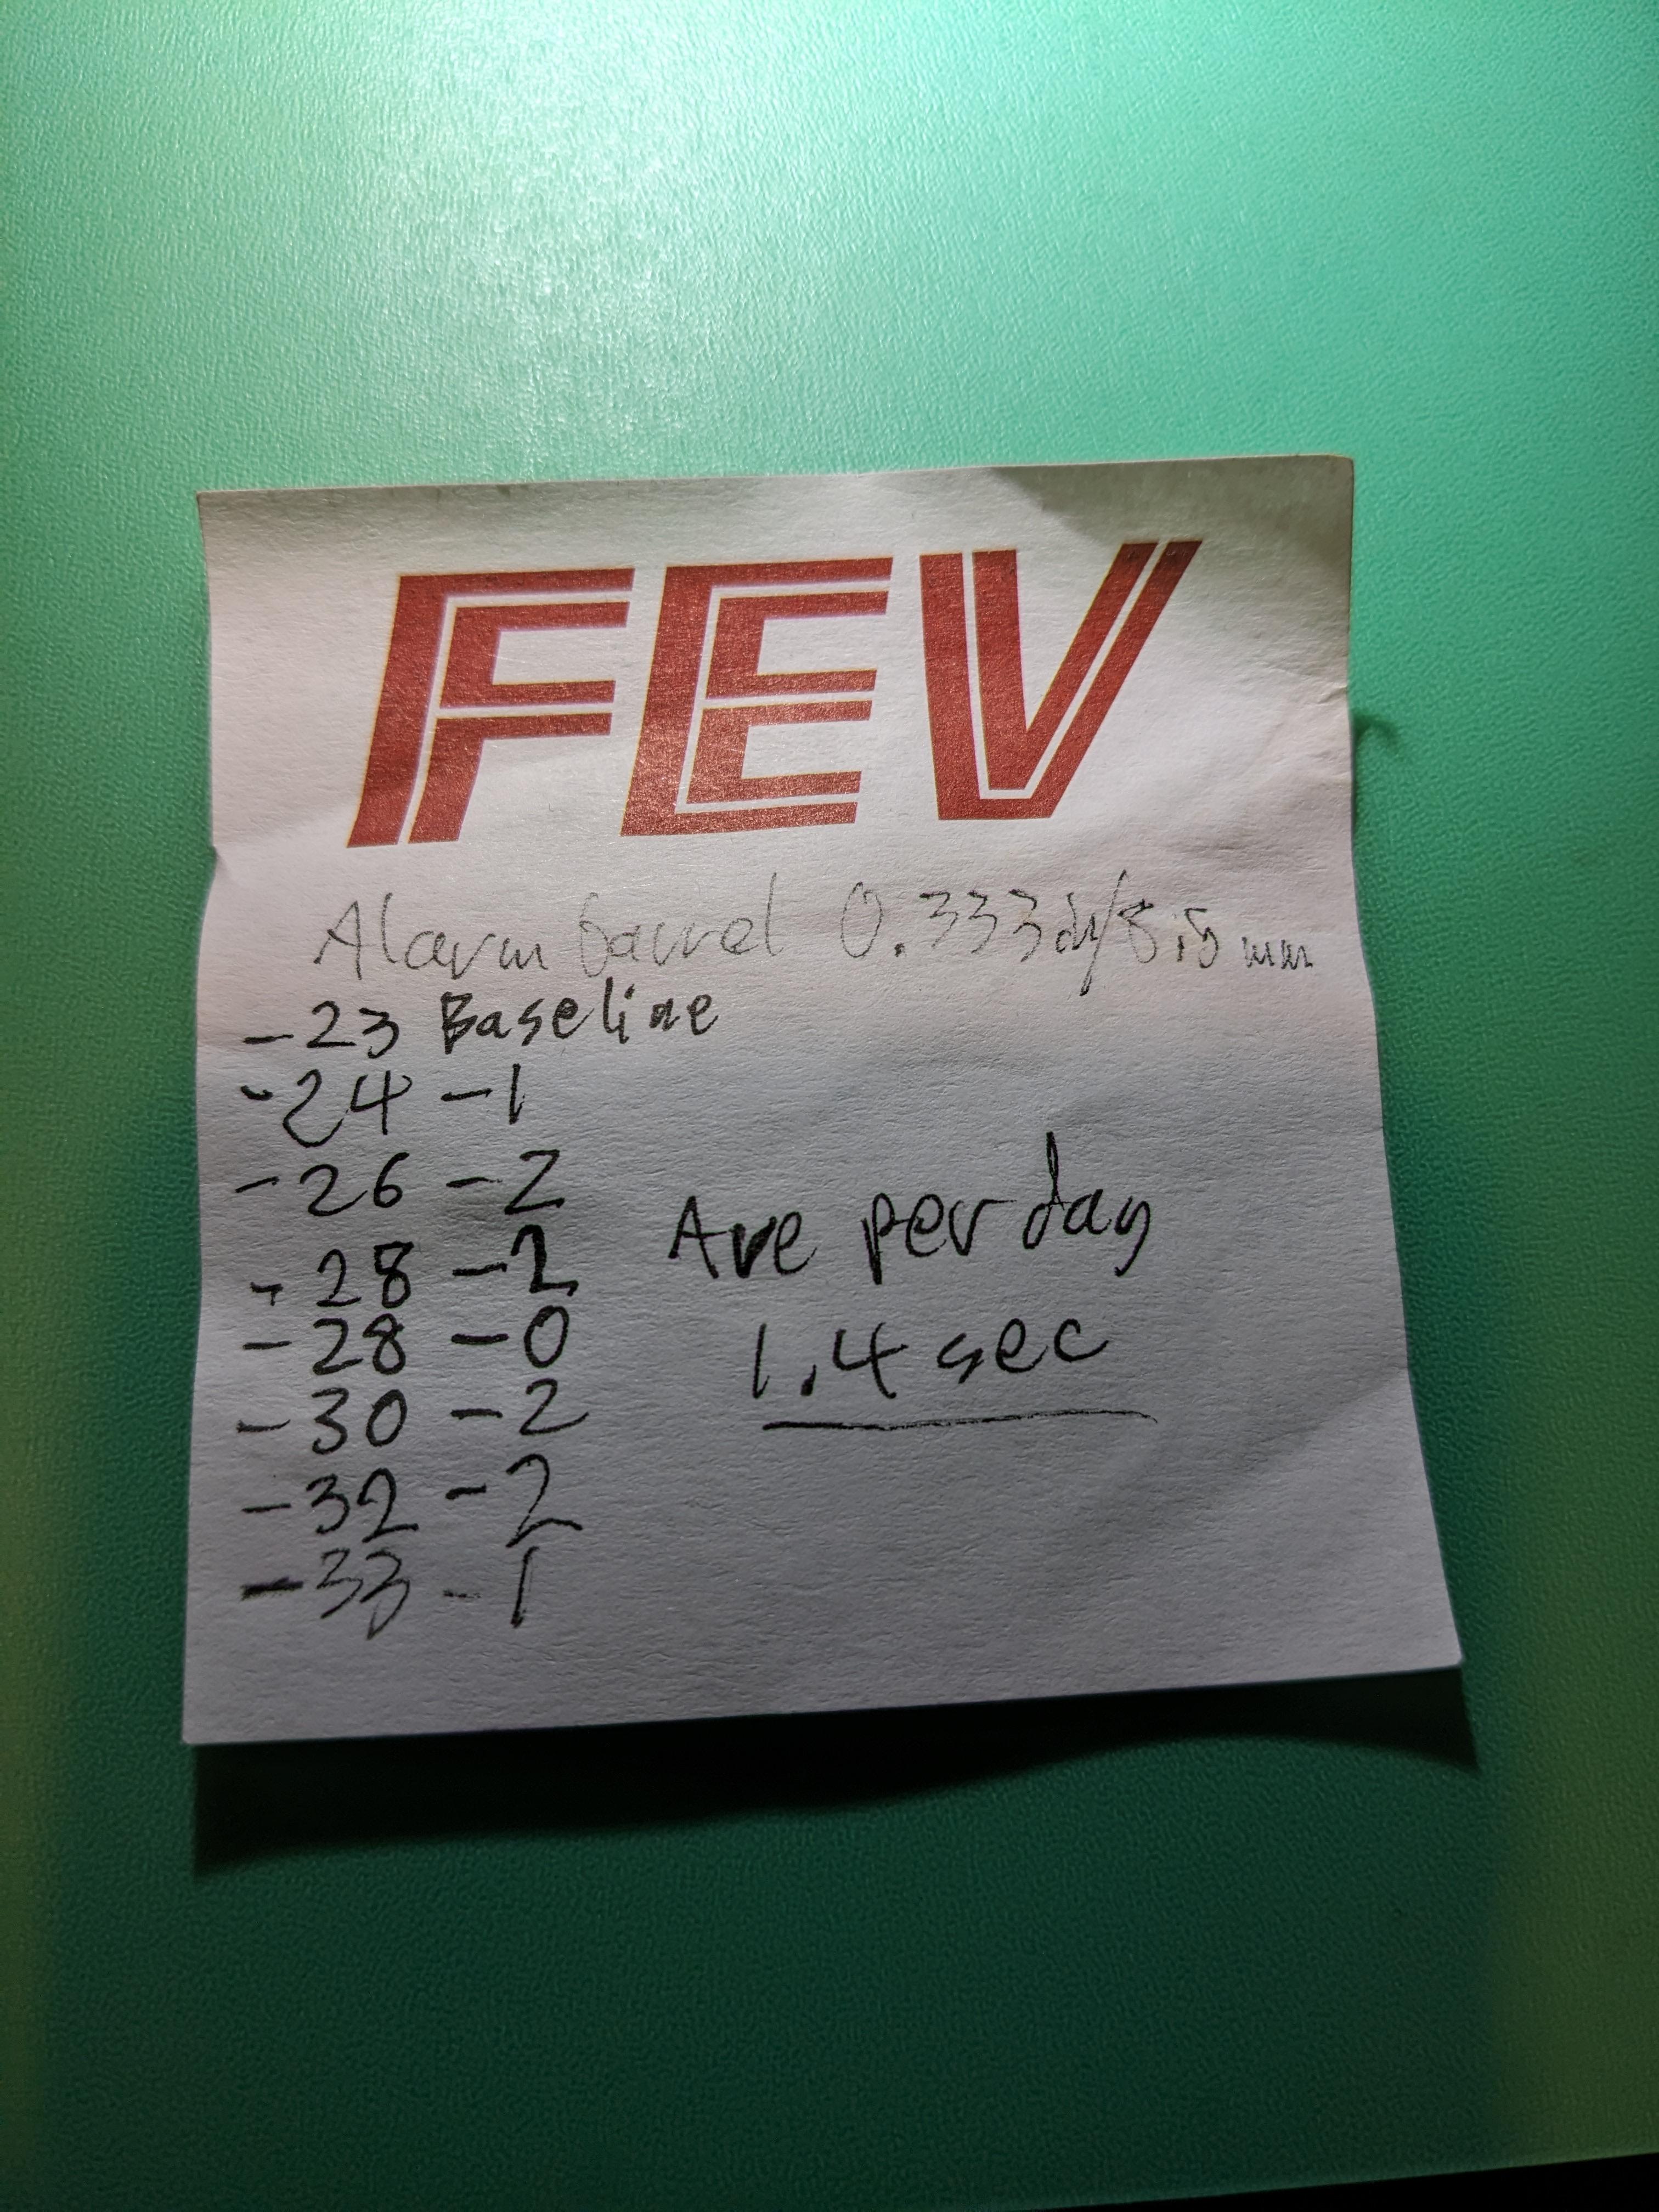 FEV
Alarm barrel 0.333 dr/8.5 mm
-23 Baseline
-24 -1
-26 -2
-28 -2
-28 -0
-30 -2
-32 -2
-33 -1
Ave per day
1.4 sec